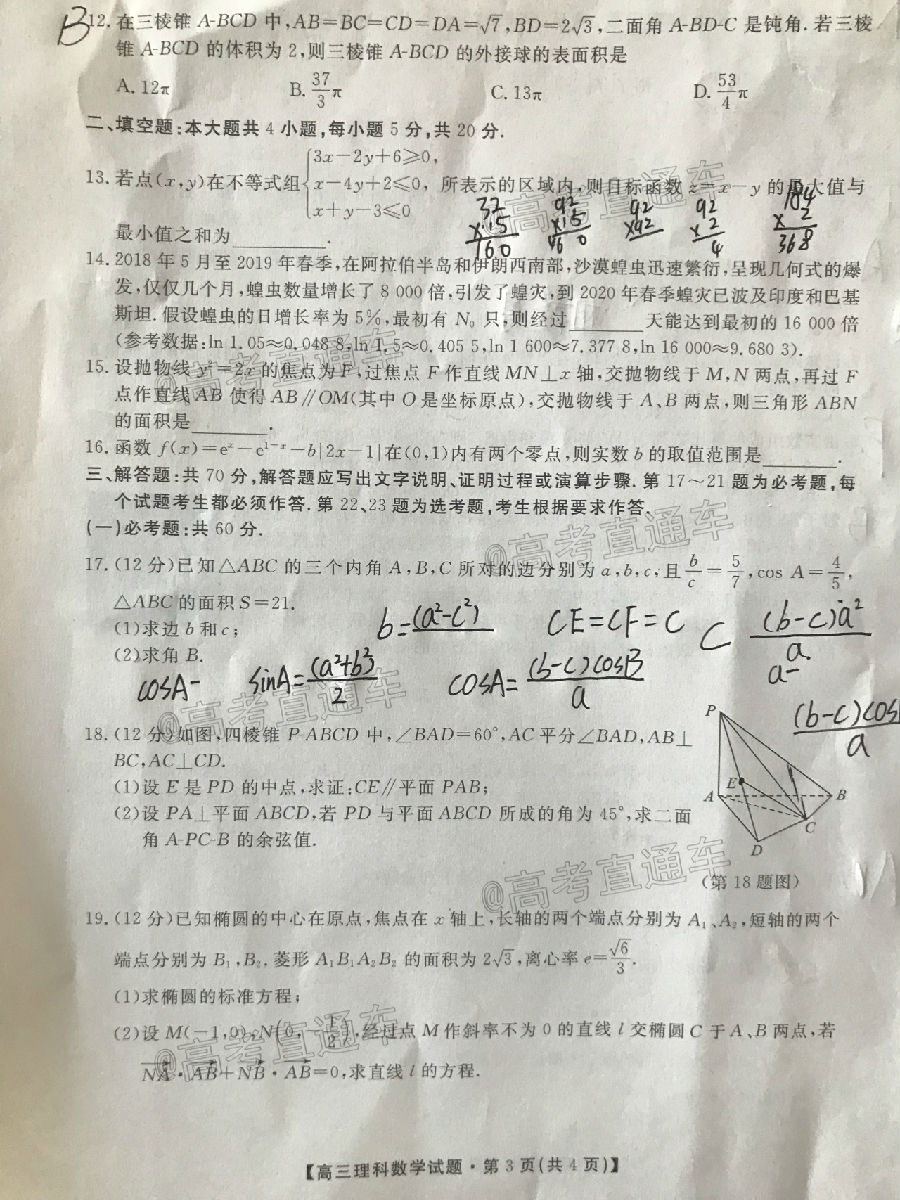 B
12.在三棱锥 A-BCD 中,AB=BC=CD=DA=√7,BD=2√3,二面角 A-BD-C 是钝角.若三棱
锥 A-BCD 的体积为 2,则三棱锥 A-BCD 的外接球的表面积是
A. 12π B. 37/3 π C. 13π D. 53/4 π
二、填空题:本大题共 4 小题,每小题 5 分,共 20 分.
13.若点(x,y)在不等式组{3x-2y+6⩾0, x-4y+2⩽0, x+y-3⩽0 所表示的区域内,则目标函数 z=x-y 的最大值与
最小值之和为________.
32 ×15 160
92 ×15 460
92 ×92
92 ×2 4
184 × 2 368
14. 2018 年 5 月至 2019 年春季,在阿拉伯半岛和伊朗西南部,沙漠蝗虫迅速繁衍,呈现几何式的爆
发,仅仅几个月,蝗虫数量增长了 8 000 倍,引发了蝗灾,到 2020 年春季蝗灾已波及印度和巴基
斯坦.假设蝗虫的日增长率为 5%,最初有 N₀ 只,则经过________天能达到最初的 16 000 倍
(参考数据:ln 1.05≈0.048 8,ln 1.5≈0.405 5,ln 1 600≈7.377 8,ln 16 000≈9.680 3).
15.设抛物线 y²=2x 的焦点为 F,过焦点 F 作直线 MN⊥x 轴,交抛物线于 M,N 两点,再过 F
点作直线 AB 使得 AB∥OM(其中 O 是坐标原点),交抛物线于 A、B 两点,则三角形 ABN
的面积是________.
16.函数 f(x)=eˣ-e¹⁻ˣ-b|2x-1|在(0,1)内有两个零点,则实数 b 的取值范围是________.
三、解答题:共 70 分,解答题应写出文字说明、证明过程或演算步骤.第 17～21 题为必考题,每
个试题考生都必须作答.第 22、23 题为选考题,考生根据要求作答.
(一)必考题:共 60 分.
17.(12 分)已知△ABC 的三个内角 A,B,C 所对的边分别为 a,b,c,且 b/c=5/7,cos A=4/5,
△ABC 的面积 S=21.
(1)求边 b 和 c;
(2)求角 B.
b=(a²-c²)
CE=CF=C
C (b-c)a²/a
a-
cosA-
sinA=(a²+b²)/2
cosA=(b-c)cosB/a
(b-c)cos/a
18.(12 分)如图,四棱锥 P-ABCD 中,∠BAD=60°,AC 平分∠BAD,AB⊥
BC,AC⊥CD.
(1)设 E 是 PD 的中点,求证:CE∥平面 PAB;
(2)设 PA⊥平面 ABCD,若 PD 与平面 ABCD 所成的角为 45°,求二面
角 A-PC-B 的余弦值.
P
E
A
B
C
D
(第 18 题图)
19.(12 分)已知椭圆的中心在原点,焦点在 x 轴上,长轴的两个端点分别为 A₁、A₂,短轴的两个
端点分别为 B₁,B₂,菱形 A₁B₁A₂B₂ 的面积为 2√3,离心率 e=√6/3.
(1)求椭圆的标准方程;
(2)设 M(-1,0),N(0,-1/2),经过点 M 作斜率不为 0 的直线 l 交椭圆 C 于 A、B 两点,若
NA·AB+NB·AB=0,求直线 l 的方程.
【高三理科数学试题·第 3 页(共 4 页)】
@高考直通车
@高考直通车
@高考直通车
@高考直通车
@高考直通车
@高考直通车